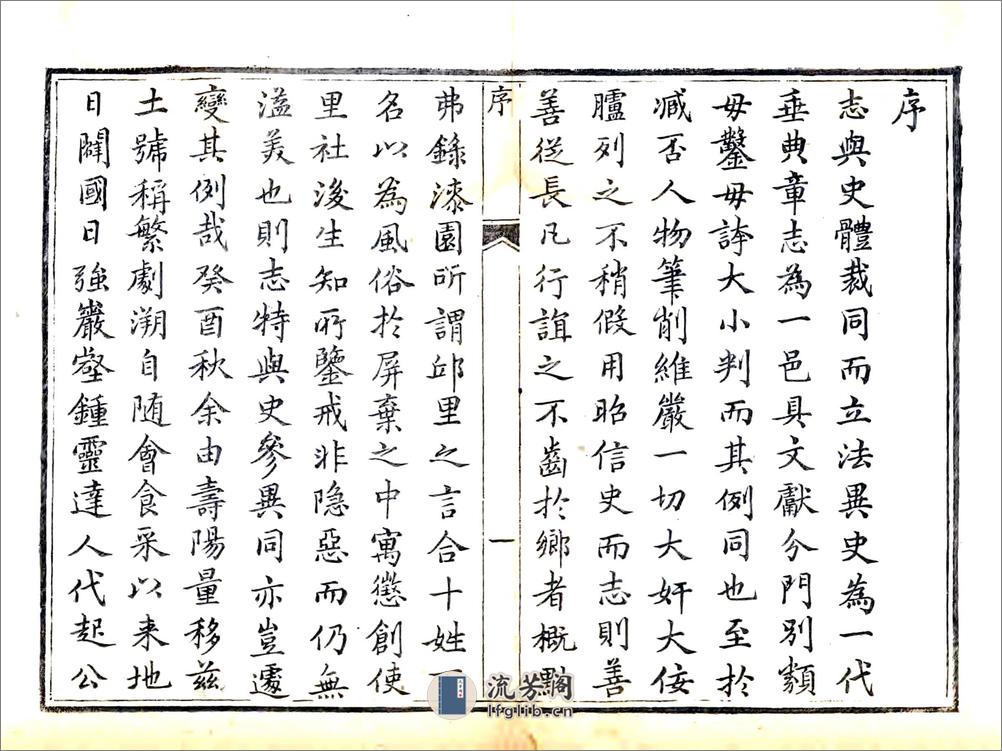 序
志與史體裁同而立法異史為一代
垂典章志為一邑具文獻分門別類
毋鑿毋誇大小判而其例同也至於
減否人物筆削維嚴一切大奸大佞
臚列之不稍假用昭信史而志則善
善從長凡行誼之不齒於鄉者概點
序
一
弗錄漆園所謂邱里之言合十姓
名以為風俗於屏棄之中寓懲創使
里社後生知所鑒戒非隱惡而仍無
溢美也則志特與史參異同亦豈遽
變其例哉癸酉秋余由壽陽量移茲
土號稱繁劇溯自随會食采以来地
日闢國日强巖壑鍾靈達人代起公
流芳閣
lfglib.cn